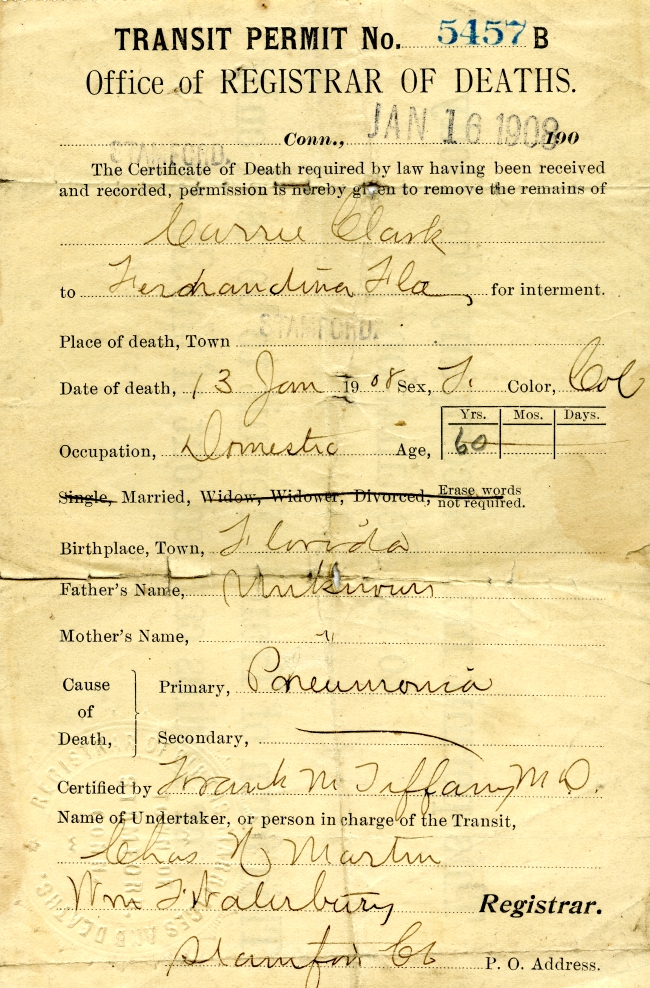 TRANSIT PERMIT No. 5457 B
Office of REGISTRAR OF DEATHS.
STAMFORD. Conn., JAN 16 1908 190
The Certificate of Death required by law having been received
and recorded, permission is hereby given to remove the remains of
Carrie Clark
to Ferdnandina Fla for interment.
Place of death, Town STAMFORD.
Date of death, 13 Jan 1908 Sex, F. Color, Col
Occupation, Domestic Age, Yrs. 60 Mos. Days.
Single, Married, Widow, Widower, Divorced, Erase words not required.
Birthplace, Town, Florida
Father's Name, Unknown
Mother's Name, "
Cause of Death, Primary, Pneumonia
Secondary,
Certified by Frank M Tiffany M D.
Name of Undertaker, or person in charge of the Transit,
Chas N Martin
Wm F Waterbury Registrar.
Stamford Ct P. O. Address.